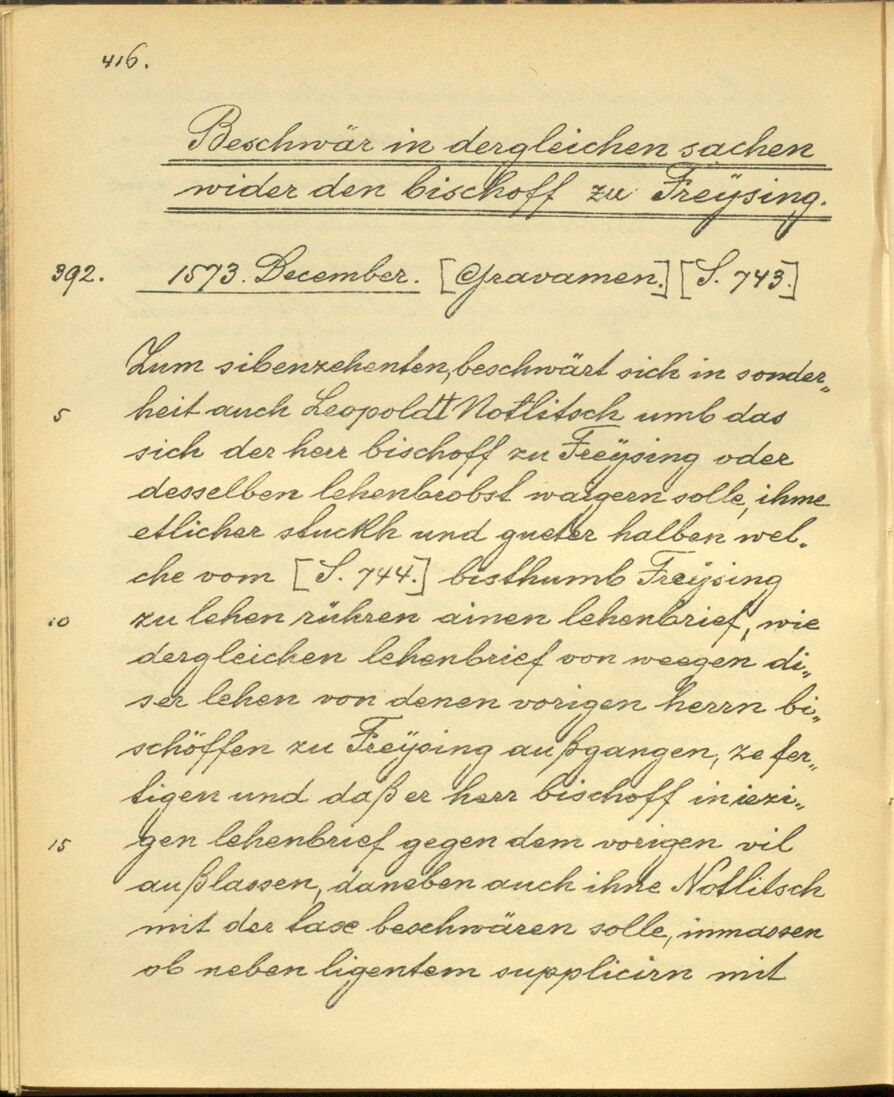 416.
Beschwär in dergleichen sachen
wider den bischoff zu Freÿsing.
392. 1573. December. [Gravamen.] [S. 743.]
Zum sibenzehenten, beschwärt sich in sonder„
5 heit auch Leopoldt Notlitsch umb das
sich der herr bischoff zu Freÿsing oder
desselben lehenbrobst waigern solle, ihme
etlicher stuckh und gueter halben wel„
che vom [S. 744.] bisthumb Freÿsing
10 zu lehen rühren ainen lehenbrief, wie
dergleichen lehenbrief von weegen di„
ser lehen von denen vorigen herrn bi„
schöffen zu Freÿsing außgangen, ze fer„
tigen und daß er herr bischoff in iezi„
15 gen lehenbrief gegen dem vorigen vil
außlassen, daneben auch ihne Notlitsch
mit der taxe beschwären solle, inmassen
ob neben ligentem supplicirn mit